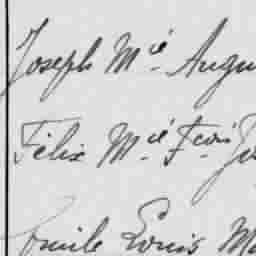 Joseph M.ié Augu
Félix M.ié F.cois Jo
Emile Louis Ma